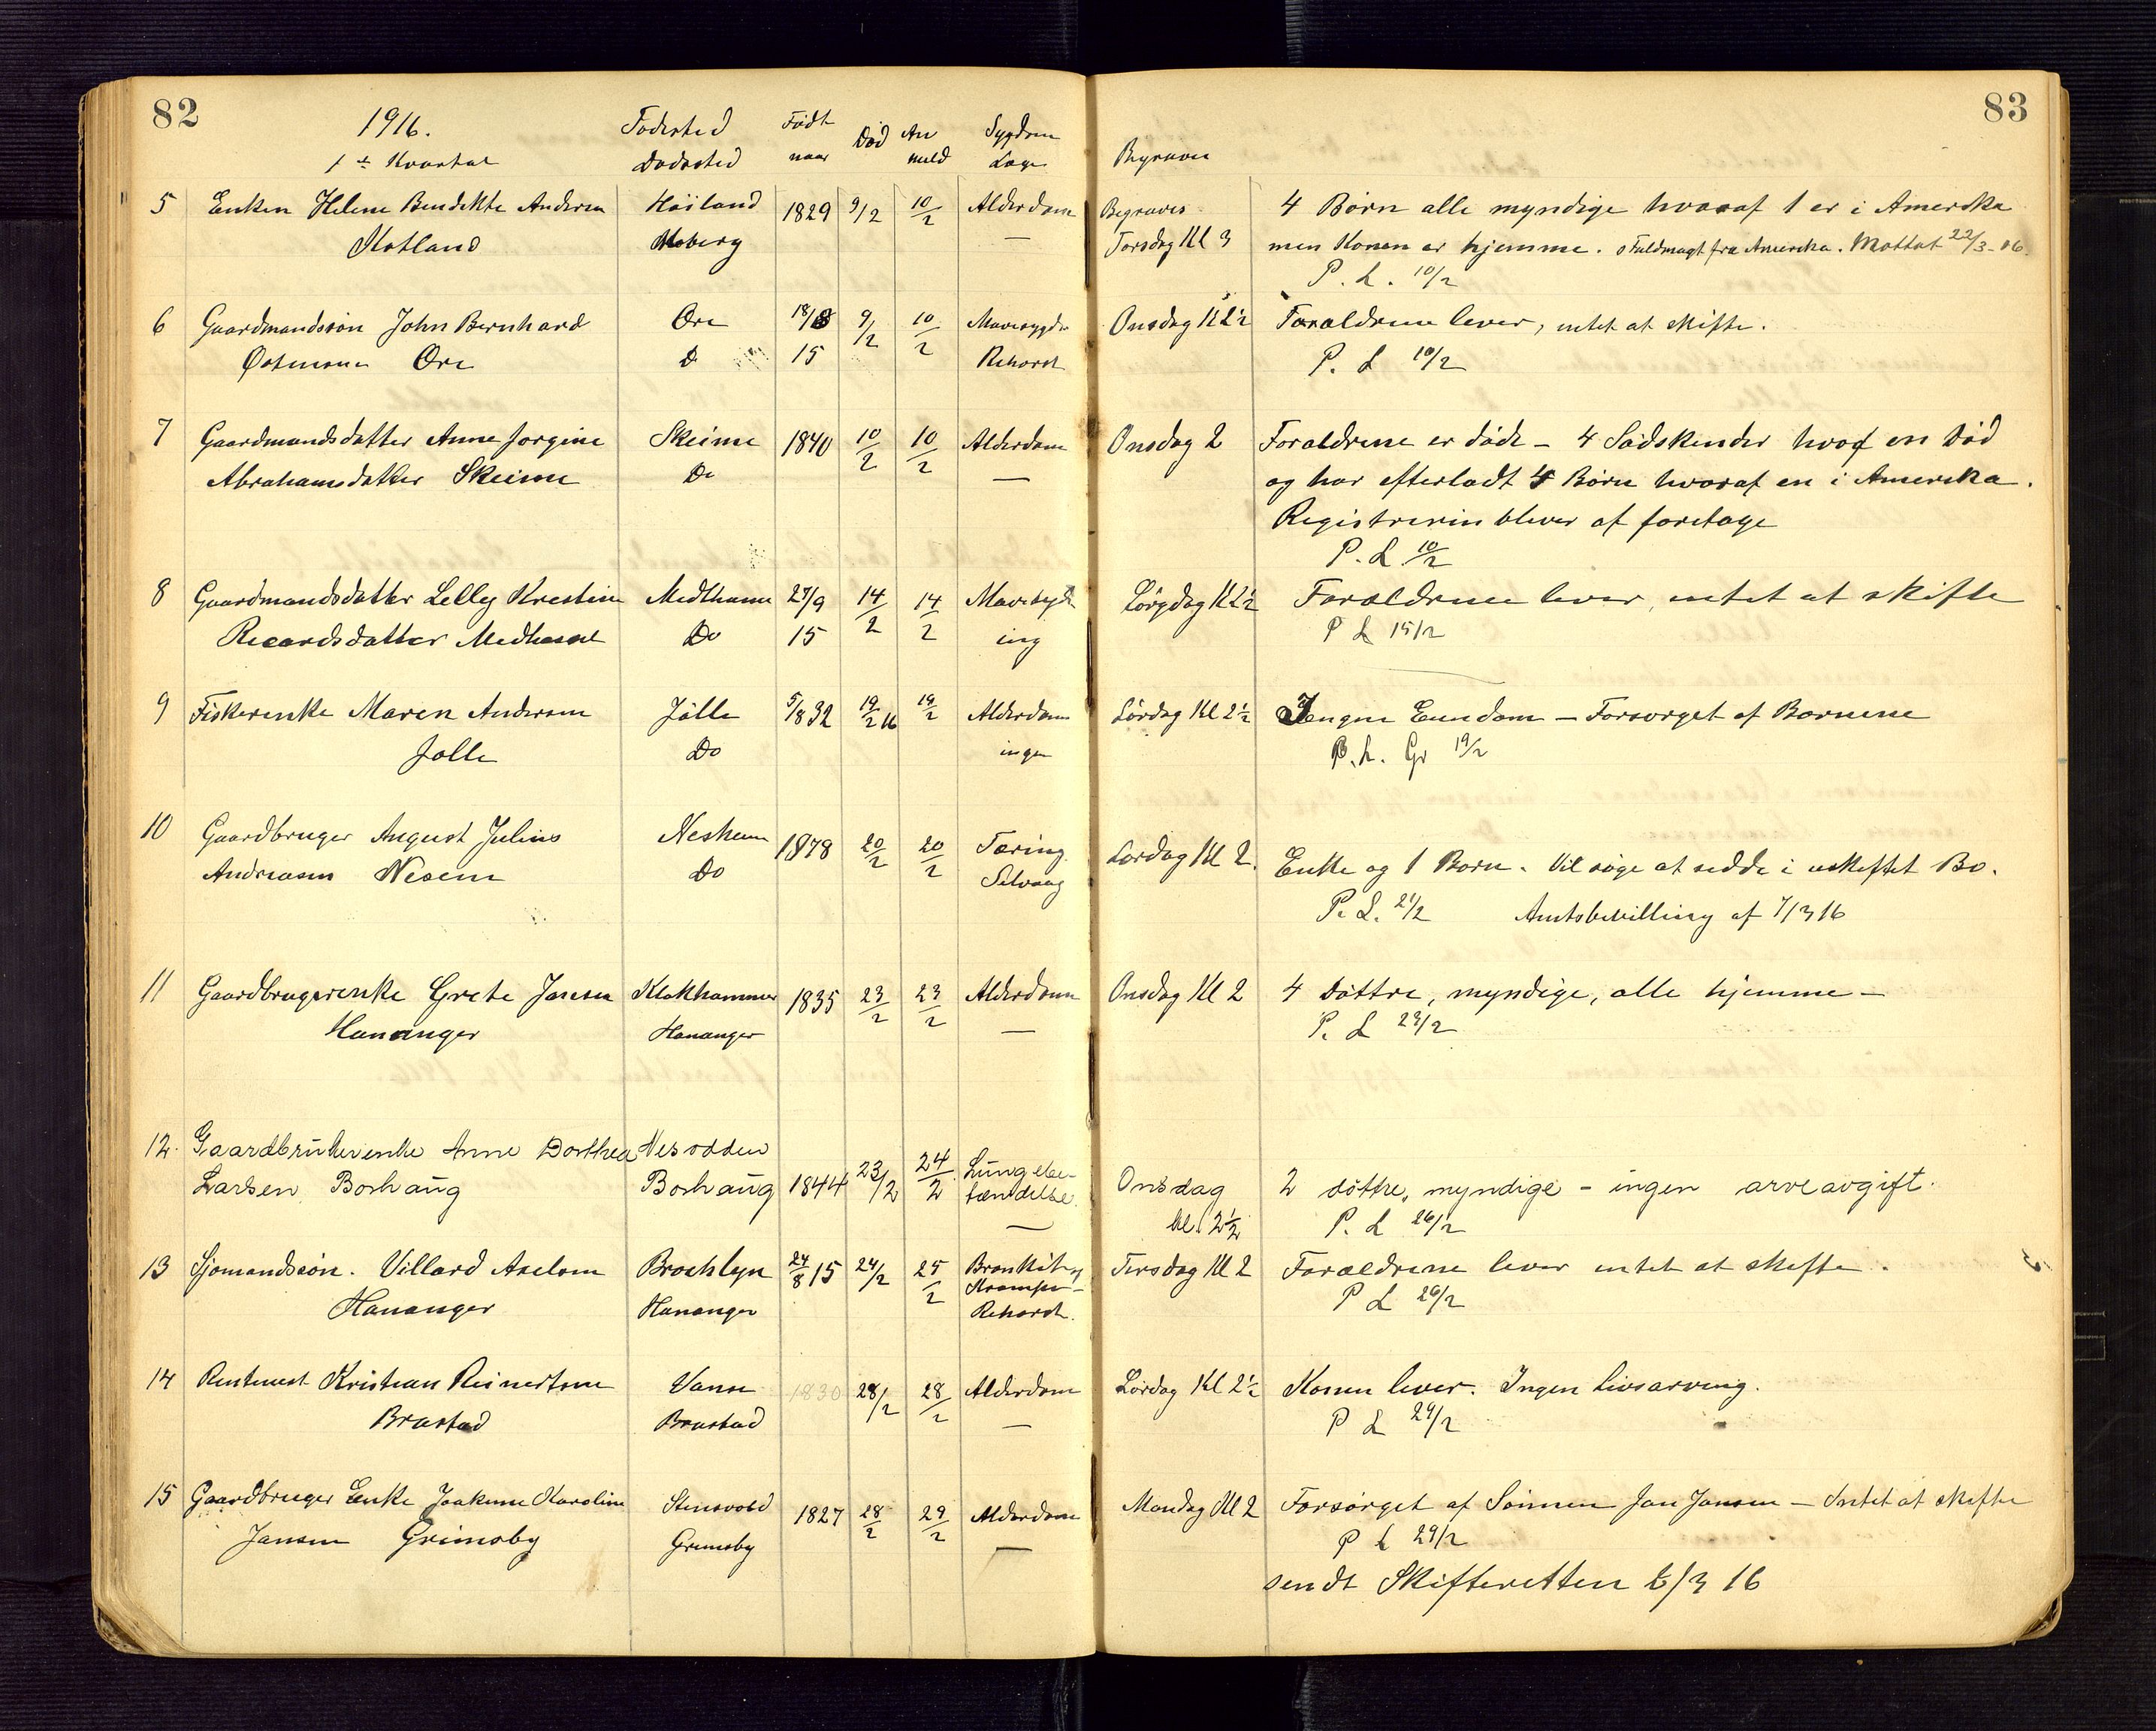 82
1916.
1ste Kvartal
Fødested
Dødssted
Født
naar
Død
An
meld
Sygdom
Læge
Begraves
83
5 Enken Helene Bendikte Andersen Høiland 1829 9/2 10/2 Alderdom Begraves 4 Børn alle myndige hvoraf 1 er i Amerika
Kotland Moberg — Torsdag Kl 3 men Konen er hjemme. Fuldmagt fra Amerika. Mottat 22/3-16.
P. L. 10/2
6 Gaardmandssøn John Bernhard Ore 18/8 9/2 10/2 Mavesygdo Onsdag Kl 2½ Forældrene lever, intet at skifte.
Ore Do 15 Rehorst P. L 10/2
7 Gaardmandsdatter Anne Jorgine Skeime 1840 10/2 10/2 Alderdom Onsdag 2 Foraldrene er døde - 4 Sødskender hvoraf en død
Abrahamsdatter Skeime Do — og har efterladt 4 Børn hvoraf en i Amerika.
Registrerin bliver at foretage
P. L. 10/2
8 Gaardmandsdatter Lelly Kristine 27/9 14/2 14/2 Mavesyk Lørgdag Kl 2½ Foraldrene lever, intet at skifte
Ricardsdatter Do 15 ing P L 15/2
9 Fiskerenke Maren Andersen Jølle 5/8 32 19/2 16 19/2 Alderdom Lørdag Kl 2½ Ingen Eiendom — Forsørget af Børnene
Jølle Do ingen P. L. Gr 19/2
10 Gaardbruger August Julius Nesheim 1878 20/2 20/2 Tæring Lørdag Kl 2. Enke og 1 Barn. Vil søge at sidde i uskiftet Bo.
Andreasen Nesem Do Selvaag P. L. 21/2 Amtsbevilling af 7/3 16
11 Gaardbrugerenke Grete Jansen Klokhammer 1835 23/2 23/2 Alderdom Onsdag Kl 2 4 Døttre, myndige, alle hjemme —
Hananger Hananger — P. L 23/2
12. Gaardbrukerenke Anne Dorthea Nesodden 1844 23/2 24/2 Lungebe- Onsdag 2 døttre, myndige - ingen arveavgift.
Larsen Borhaug Borhaug tændelse. kl. 2½ P. L 26/2
13 Sjømandssøn. Villard Axelsen Brooklyn 24/8 15 24/2 25/2 Bronkit og Tirsdag Kl 2 Forældrene lever intet at skifte.
Hananger Hananger Krampe - P L 26/2
Rehorst.
14 Rentenist Kristian Reinertsen Vanse 1830 28/2 28/2 Alderdom Lørdag Kl 2½ Konen lever. Ingen livsarving.
Brastad Brastad — P L 29/2
15 Gaardbruger Enke Joakime Karoline Stensvold 1827 28/2 29/2 Alderdom Mandag Kl 2 Forsørget af Sønnen Jan Jansen — Intet at skifte
Jansen Grimsby Grimsby — P L 29/2
sendt Skifteretten 6/3 16